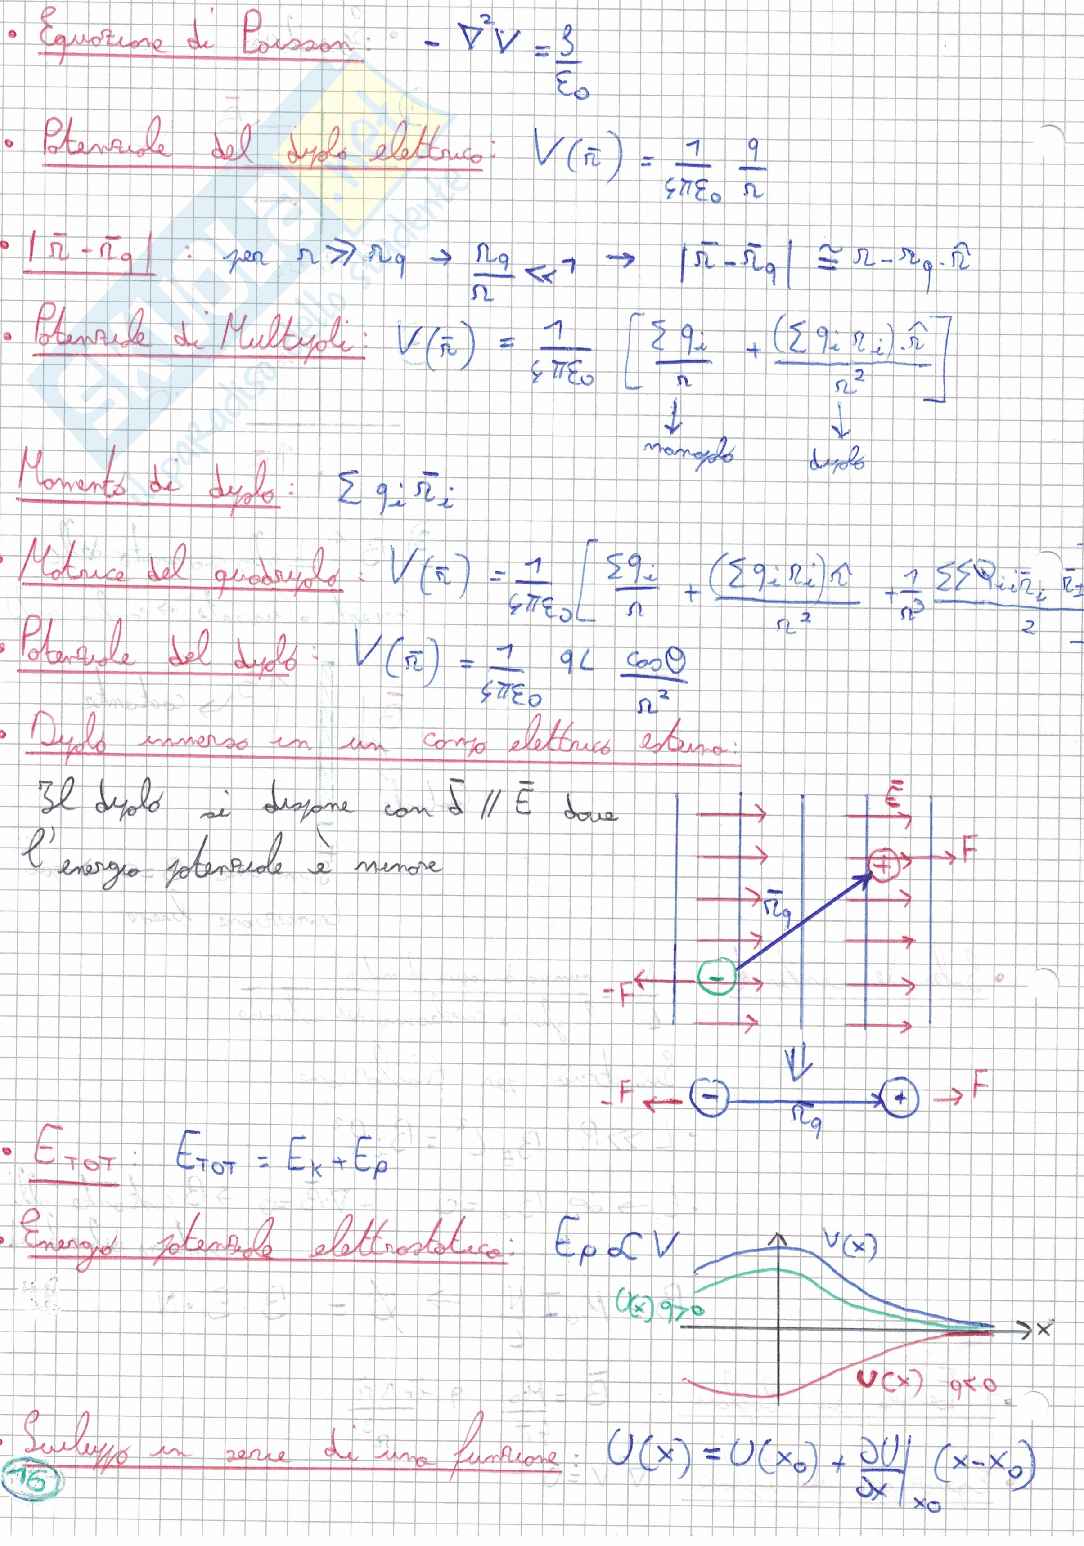 • Equazione di Poisson: - ∇²V = ρ/ε₀
• Potenziale del dipolo elettrico: V(r̄) = 1/4πε₀ q/r
• |r̄ - r̄q| : per r ≫ rq → rq/r ≪ 1 → |r̄ - r̄q| ≅ r - rq · r̂
• Potenziale di Multipoli: V(r̄) = 1/4πε₀ [Σ qi/r + (Σ qi ri)·r̂/r²]
↓ monopolo ↓ dipolo
Momento di dipolo: Σ qi r̄i
• Matrice del quadrupolo: V(r̄) = 1/4πε₀ [Σqi/r + (Σ qi ri) r̂/r² + 1/r³ ΣΣQij r̄i r̄j/2
• Potenziale del dipolo: V(r̄) = 1/4πε₀ qL cosθ/r²
• Dipolo immerso in un campo elettrico esterno:
Il dipolo si dispone con d̄ // Ē dove
l'energia potenziale è minore
Ē
+ F
r̄q
-
-F
⇓
-F - r̄q + F
• E_TOT: E_TOT = E_K + E_P
• Energia potenziale elettrostatica: E_P ∝ V
V(x)
U(x) q>0
x
U(x) q<0
• Sviluppo in serie di una funzione: U(x) = U(x₀) + ∂U/∂x|x₀ (x-x₀)
16
SKUOLA.net